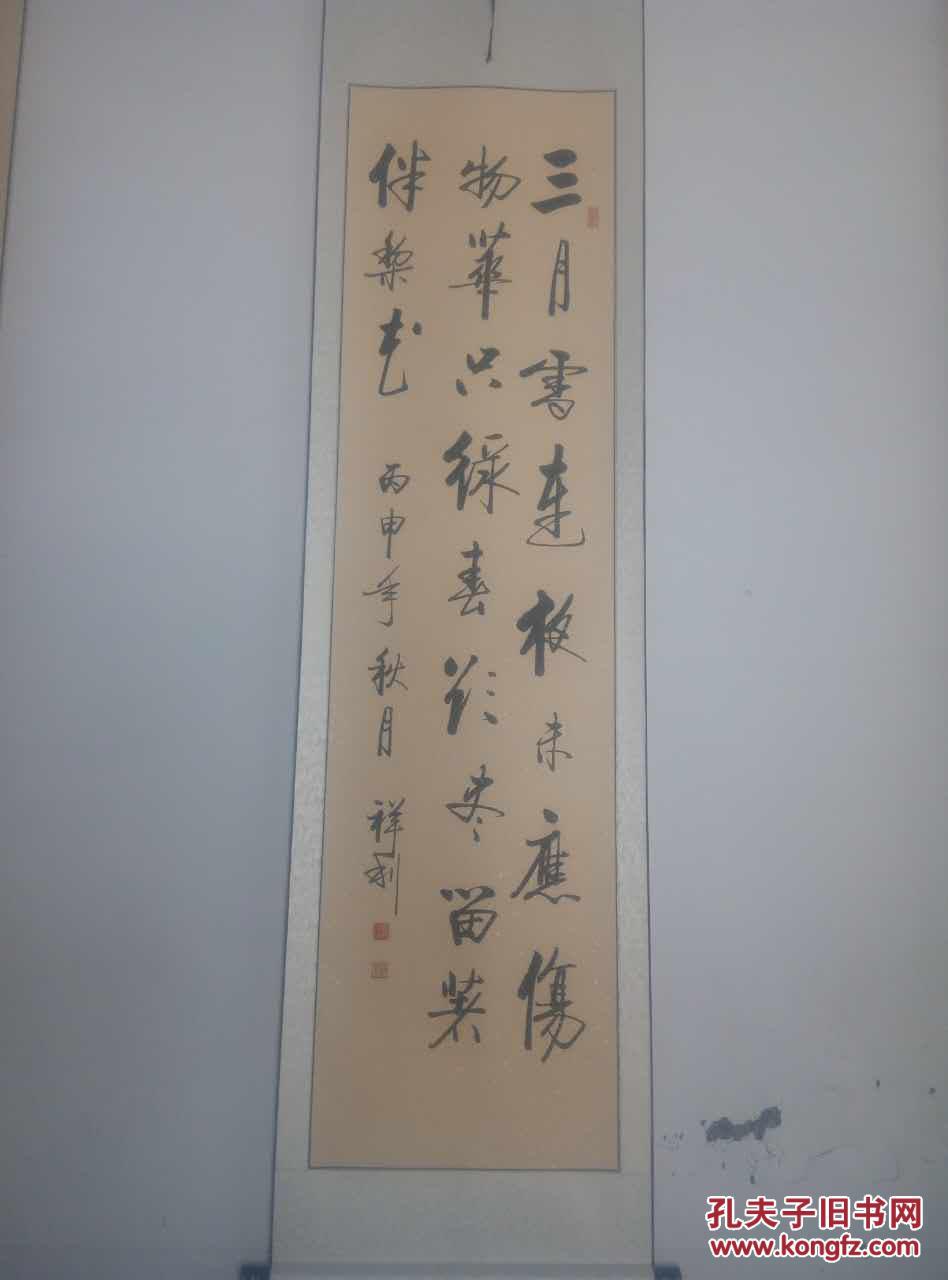 三月雪連夜未應傷
物華只緣春欲盡留着
伴梨花 丙申年秋月 祥利
孔夫子旧书网
www.kongfz.com